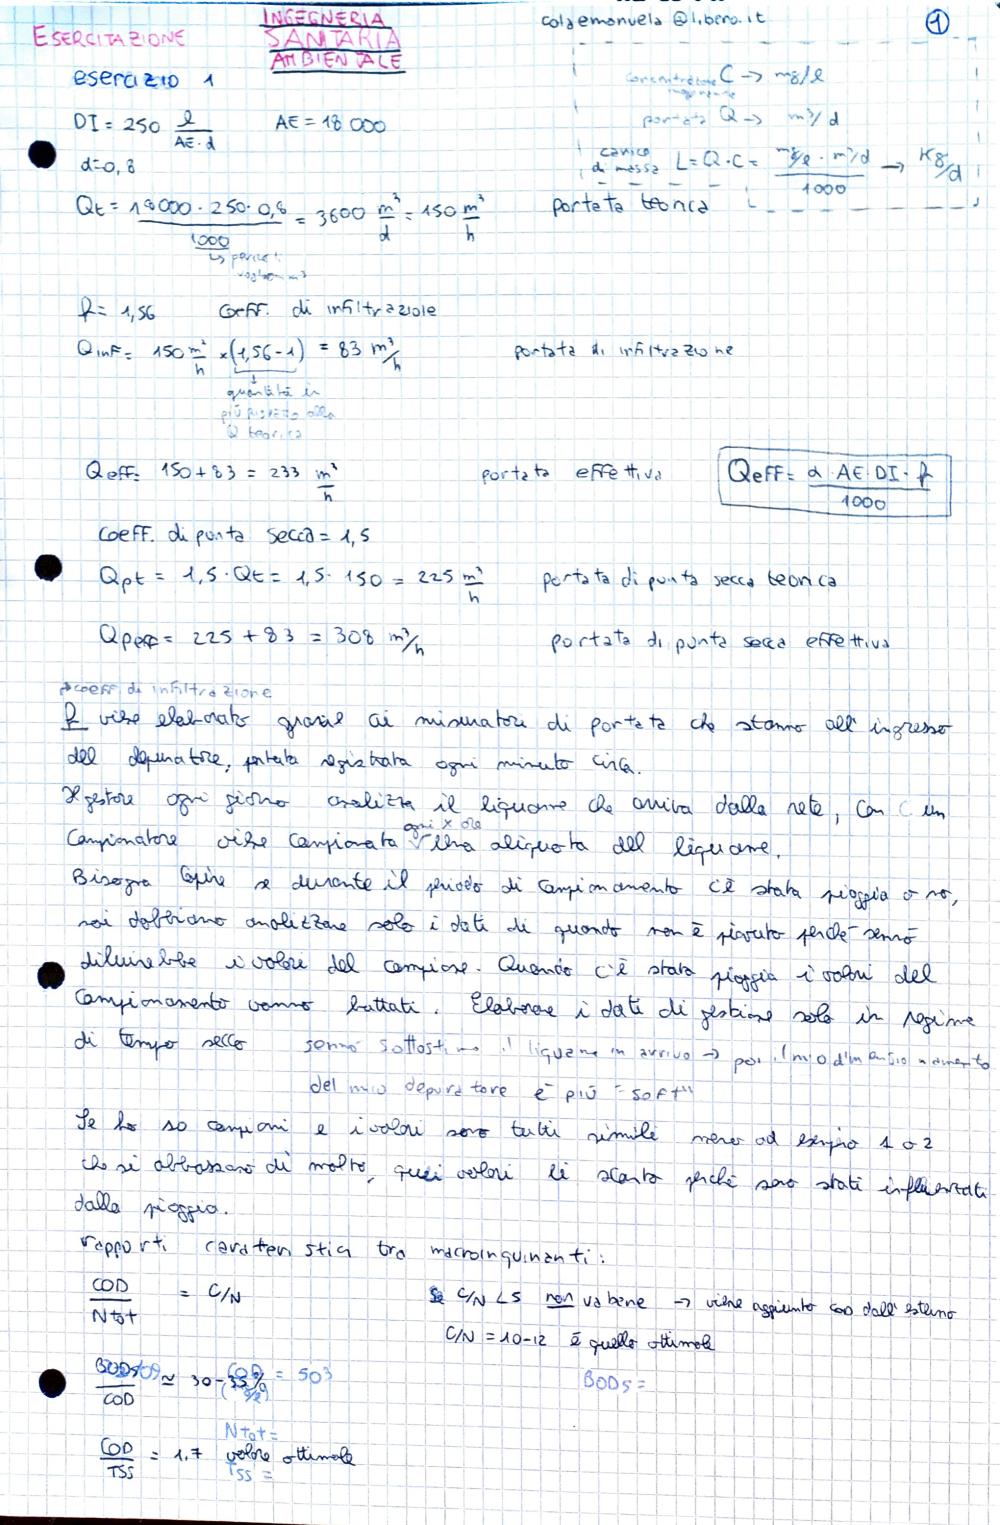 ESERCITAZIONE
INGEGNERIA
SANITARIA
AMBIENTALE
colaemanuela@libero.it
1
esercizio 1
concentrazione C → mg/l
inquinante
portata Q → m³/d
carico di massa L = Q·C = mg/l · m³/d / 1000 → Kg/d
DI = 250 l / AE·d    AE = 18 000
α = 0,8
Qt = 18000 · 250 · 0,8 / 1000 = 3600 m³/d = 150 m³/h    portata teorica
↳ perché
voglio m³
f = 1,56    coeff. di infiltrazione
Qinf = 150 m³/h × (1,56-1) = 83 m³/h    portata di infiltrazione
quantità in
più rispetto alla
Q teorica
Qeff = 150+83 = 233 m³/h    portata effettiva
Qeff = α·AE·DI·f / 1000
coeff. di punta secca = 1,5
Qpt = 1,5·Qt = 1,5·150 = 225 m³/h    portata di punta secca teorica
Qpeff = 225 + 83 = 308 m³/h    portata di punta secca effettiva
coeff. di infiltrazione
f viene elaborato grazie ai misuratori di portata che stanno all'ingresso
del depuratore, portata registrata ogni minuto circa.
Il gestore ogni giorno analizza il liquame che arriva dalla rete, con un
ogni x ore
campionatore viene campionata una aliquota del liquame.
Bisogna capire se durante il periodo di campionamento c'è stata pioggia o no,
noi dobbiamo analizzare solo i dati di quando non è piovuto perché sennò
diluirebbe i valori del campione. Quando c'è stata pioggia i valori del
campionamento vanno buttati. Elaborare i dati di gestione solo in regime
di tempo secco    sennò sottostimo il liquame in arrivo → poi il mio dimensionamento
del mio depuratore è più "soft"
Se ho 50 campioni e i valori sono tutti simili meno ad esempio 1 o 2
che si abbassano di molto, quei valori li scarto perché sono stati influenzati
dalla pioggia.
rapporti caratteristici tra macroinquinanti:
COD / Ntot = C/N    se C/N < 5 non va bene → viene aggiunto COD dall'esterno
C/N = 10-12 è quello ottimale
BOD5 / COD ≃ 30-35%
COD = 503
(g/l)
BOD5 =
Ntot =
COD / TSS = 1.7 valore ottimale
TSS =